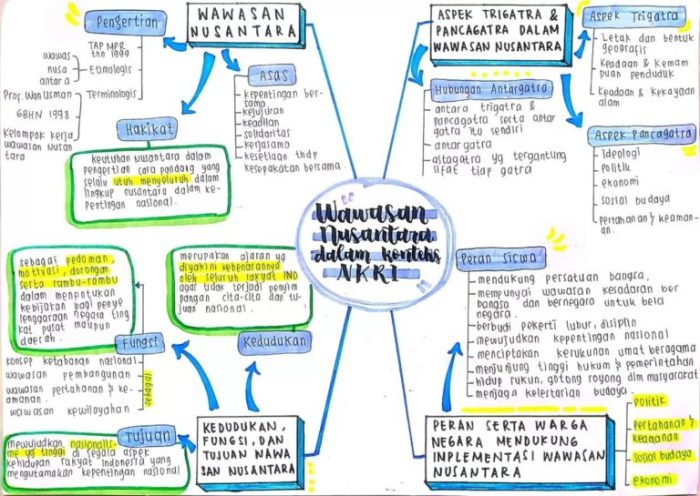 WAWASAN
NUSANTARA
Pengertian
TAP MPR
thn 1999
wawas
nusa
antara
Etimologis
Prof. Wan Usman
Terminologis
GBHN 1998
Kelompok kerja
wawasan Nusan
tara
Asas
kepentingan ber-
sama
kejujuran
keadilan
solidaritas
kerjasama
kesetiaan thdp
kesepakatan bersama
Hakikat
keutuhan nusantara dalam
pengertian cara pandang yang
selalu utuh menyeluruh dalam
lingkup nusantara dalam ke-
pentingan nasional.
ASPEK TRIGATRA &
PANCAGATRA DALAM
WAWASAN NUSANTARA
Aspek Trigatra
Letak dan bentuk
geografis
Keadaan & kemam
puan penduduk
Keadaan & kekayaan
alam
Hubungan Antargatra
antara trigatra &
pancagatra serta antar
gatra itu sendiri
antar gatra
astagatra yg tergantung
sifat tiap gatra
Aspek Pancagatra
ideologi
politik
ekonomi
sosial budaya
pertahanan & keaman-
an.
Wawasan
Nusantara
dalam konteks
NKRI
sebagai pedoman,
motivasi, dorongan
serta rambu-rambu
dalam menentukan
kebijakan bagi penye
lenggaraan negara ting
kat pusat maupun
daerah.
merupakan ajaran yg
diyakini kebenarannya
oleh seluruh rakyat IND
agar tidak terjadi penyim
pangan cita-cita dan tu-
juan nasional.
Fungsi
Kedudukan
konsep ketahanan nasional
wawasan pembangunan
wawasan pertahanan & ke-
amanan.
wawasan kewilayahan
sebagai
Tujuan
mewujudkan nasionalis-
me yg tinggi di segala aspek
kehidupan rakyat indonesia yang
mengutamakan kepentingan nasional
KEDUDUKAN,
FUNGSI, DAN
TUJUAN WAWA
SAN NUSANTARA
Peran Siswa
mendukung persatuan bangsa,
mempunyai wawasan kesadaran ber
bangsa dan bernegara untuk bela
negara.
berbudi pekerti luhur, disiplin
mewujudkan kepentingan nasional
menciptakan kerukunan umat beragama
menjunjung tinggi hukum & pemerintahan
hidup rukun, gotong royong dlm masyarakat
menjaga kelestarian budaya.
PERAN SERTA WARGA
NEGARA MENDUKUNG
INPLEMENTASI WAWASAN
NUSANTARA
politik
pertahanan &
keamanan
sosial budaya
ekonomi